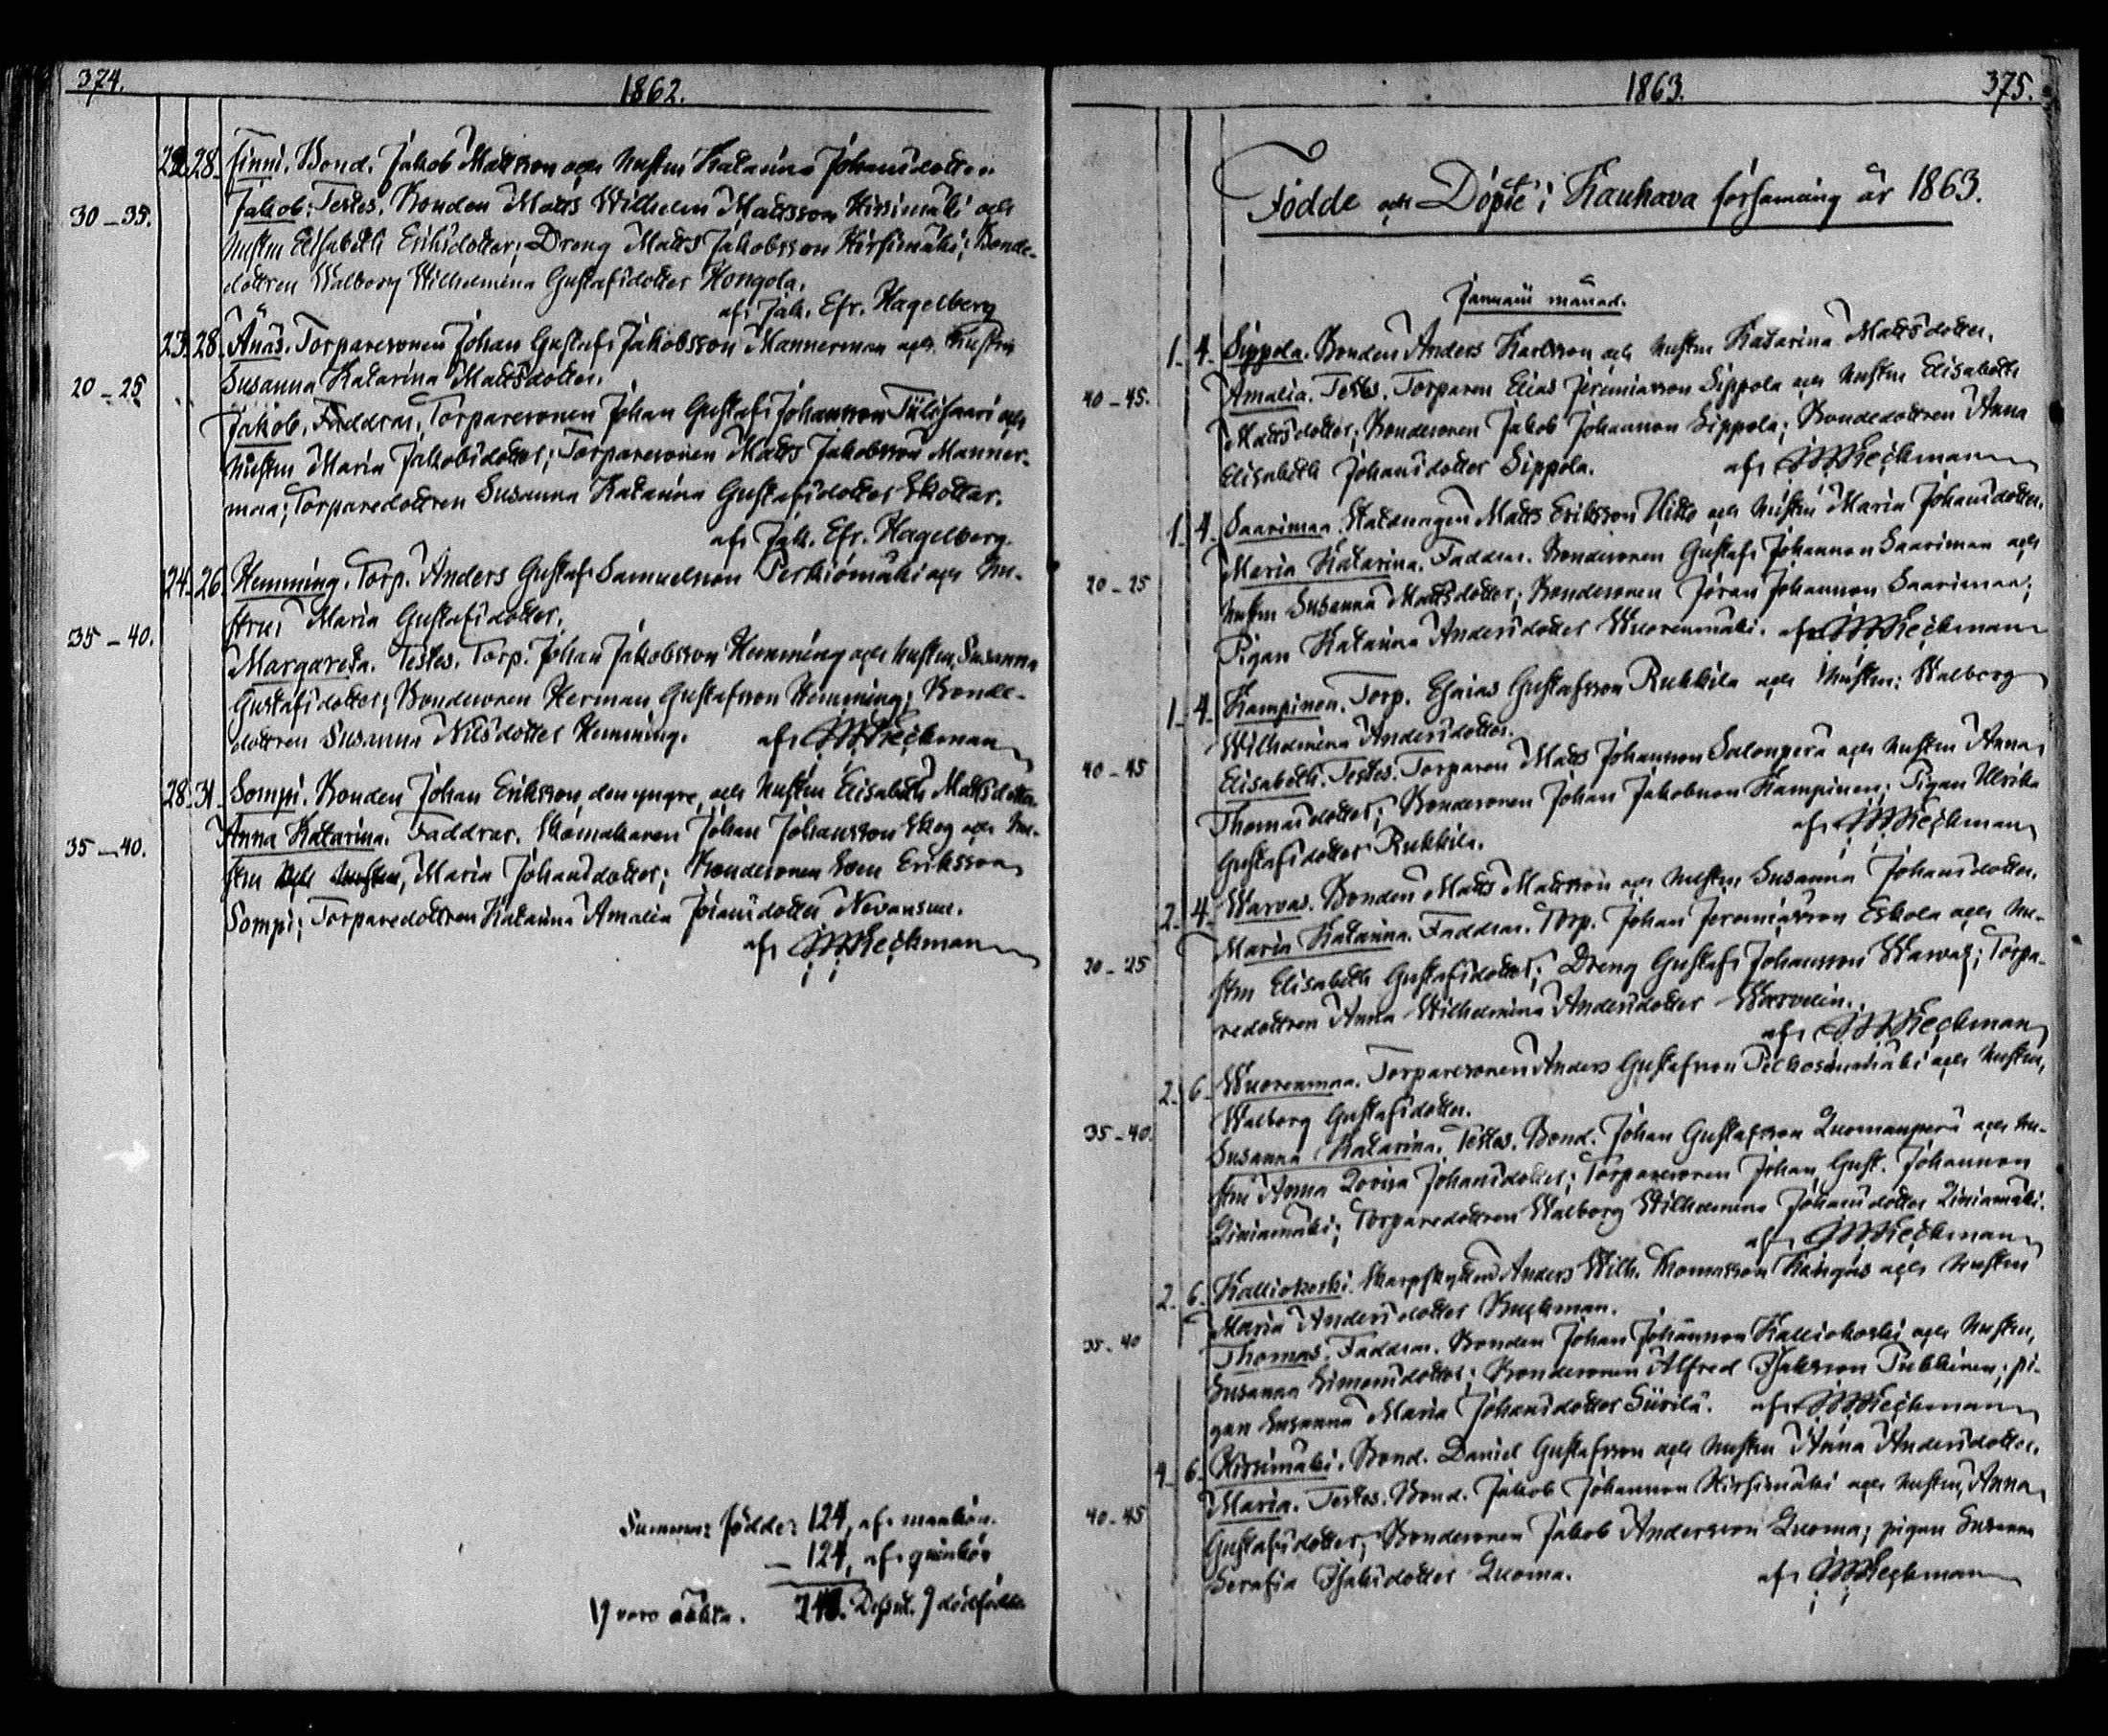 374.
1862.
22. 28. Finni. Bond. Jakob Mattsson och hustrun Katarina Johansdotter.
30–35. Jakob. Testes. Bonden Matts Wilhelm Mattsson Hirsimäki och
hustrun Elisabeth Eriksdotter; Dreng Matts Jakobsson Hirsimäki; Bonde-
dottren Walborg Wilhelmina Gustafsdotter Hongola.
af Jak. Efr. Hagelberg
23. 28. Änäs. Torparesonen Johan Gustaf Jakobsson Mannermaa och hustrun
20–25 Susanna Katarina Mattsdotter.
Jakob. Faddrar. Torparesonen Johan Gustaf Johansson Tiilisaari och
hustrun Maria Jakobsdotter; Torparesonen Matts Jakobsson Manner-
maa; Torparedottren Susanna Katarina Gustafsdotter Skottar.
af Jak. Efr. Hagelberg.
24. 26. Hemming. Torp. Anders Gustaf Samuelsson Perkiömäki och hu-
strun Maria Gustafsdotter.
35–40. Margareta. Testes. Torp. Johan Jakobsson Hemming och hustrun, Susanna
Gustafsdotter; Bondesonen Herman Gustafsson Hemming; Bonde-
dottren Susanna Nilsdotter Hemming. af
28. 31. Sompi. Bonden Johan Eriksson, den yngre, och hustrun Elisabeth Mattsdotter.
35–40. Anna Katarina. Faddrar. Skomakaren Johan Johansson Skog och hu-
strun, Maria Johansdotter; Bondesonen Sven Eriksson
Sompi; Torparedottren Katarina Amalia Johansdotter
af
Summa: födde: 124, af mankön.
– 124, af qvinkön
17 voro oäkta. 248. Dessut. 9 dödfödde
1863.
375.
Födde och Döpte i Kauhava församling år 1863.
Januarii månad.
1. 4. Sippola. Bonden Anders Karlsson och hustrun Katarina Mattsdotter.
40–45. Amalia. Testes. Torparen Elias Jeremiasson Sippola och hustrun Elisabeth
Mattsdotter; Bondesonen Jakob Johansson Sippola; Bondedottren Anna
Elisabeth Johansdotter Sippola. af
1. 4. Saarimaa. Matts Eriksson och hustrun Maria Johansdotter.
20–25 Maria Katarina. Faddrar. Bondesonen Gustaf Johansson Saarimaa och
hustrun Susanna Mattsdotter; Bondesonen Jöran Johansson Saarimaa;
Pigan Katarina Andersdotter Wuorenmäki. af
1. 4. Kampinen. Torp. Esaias Gustafsson Rukkila och hustrun: Walborg
Wilhelmina Andersdotter.
40–45 Elisabeth. Testes. Torparen Matts Johansson Salonperä och hustrun Anna
Thomasdotter; Bondesonen Johan Jakobsson Kampinen; Pigan Ulrika
Gustafsdotter Rukkila. af
2. 4. Warvas. Bonden Matts Mattsson och hustrun Susanna Johansdotter.
20–25 Maria Katarina. Faddrar. Torp. Johan Jeremiasson Eskola och hu-
strun Elisabeth Gustafsdotter; Dreng Gustaf Johansson Warvas; Torpa-
redottren Anna Wilhelmina Andersdotter
af
2. 6. Wuorenmaa. Torparesonen Anders Gustafsson och hustrun,
Walborg Gustafsdotter.
35–40. Susanna Katarina. Testes. Bond. Johan Gustafsson Luomanperä och hu-
strun Anna Lovisa Johansdotter; Torparesonen Johan Gust. Johansson
Liniamäki; Torparedottren Walborg Wilhelmina Johansdotter Liniamäki.
af
2. 6. Kalliokoski. Skarpskytten Anders Wilh. Thomasson Kangas och hustrun
Maria Andersdotter
35–40 Thomas. Faddrar. Bonden Johan Johansson Kalliokoski och hustrun,
Susanna Simonsdotter; Bondesonen Alfred Isaksson Pukkinen; pi-
gan Susanna Maria Johansdotter Siirilä. af
4. 6. Hirsimäki. Bond. Daniel Gustafsson och hustrun Anna Andersdotter.
40–45 Maria. Testes. Bond. Jakob Johansson Hirsimäki och hustrun, Anna
Gustafsdotter; Bondesonen Jakob Andersson Luoma; pigan Susanna
Serafia Isaksdotter Luoma. af